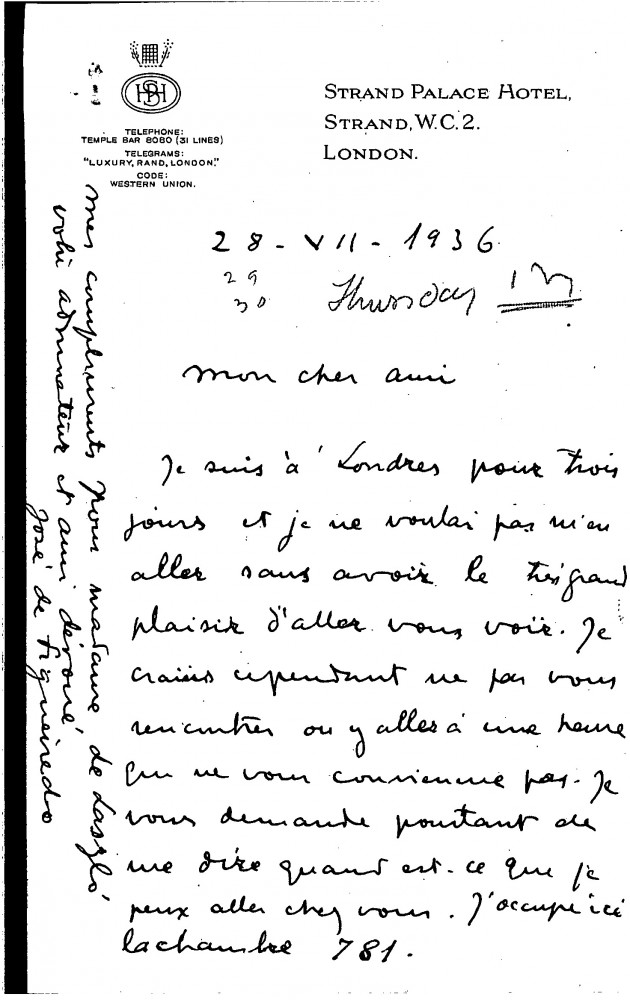 HSBH
TELEPHONE:
TEMPLE BAR 8080 (31 LINES)
TELEGRAMS:
"LUXURY, RAND, LONDON."
CODE:
WESTERN UNION.
STRAND PALACE HOTEL,
STRAND, W.C.2.
LONDON.
28 - VII - 1936
29
30 Thursday
Mon cher ami
Je suis à Londres pour trois
jours et je ne voulai pas m'en
aller sans avoir le très grand
plaisir d'aller vous voir. Je
crains cependant ne pas vous
rencontrer ou y aller à une heure
qui ne vous convienne pas. Je
vous demande pourtant de
me dire quand est-ce que je
peux aller chez vous. J'occupe ici
la chambre 781.
Mes compliments pour madame de László
votre admirateur et ami dévoué,
José de Figueiredo